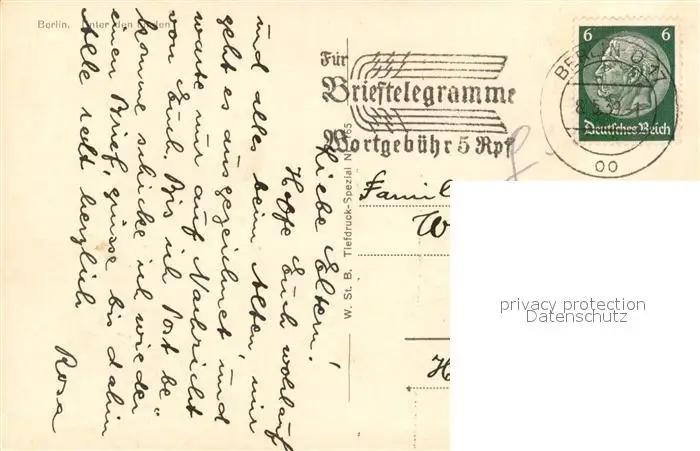 Berlin. Unter den Linden
Liebe Eltern!
Hoffe Euch wohlauf
und alles beim Alten, mir
geht es ausgezeichnet, und
warte nur auf Nachricht
von Euch. Bis ich Post be"
komme schicke ich wieder
einen Brief, grüsse bis dahin
Alle recht herzlich
Rosa
W. St. B. Tiefdruck-Spezial
Für
Brieftelegramme
Wortgebühr 5 Rpf
BERLIN O 17
oo
6 6
Deutsches Reich
Famil
W
H
privacy protection
Datenschutz